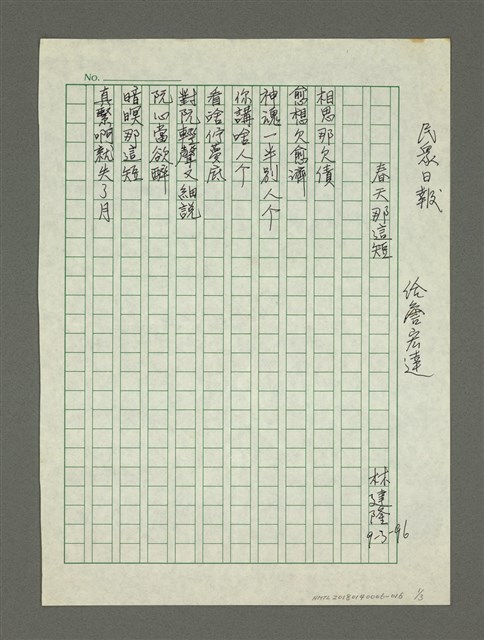 No.
民眾日報
給詹宏達
春天那這短
林建隆
9-3-96
相思那欠債
愈想欠愈濟
神魂一半別人个
你講啥人个
看啥佇憂慼
對阮輕聲又細說
阮心當欲醉
暗暝那這短
真緊啊就失了月
NMTL20180190006-006
1/3